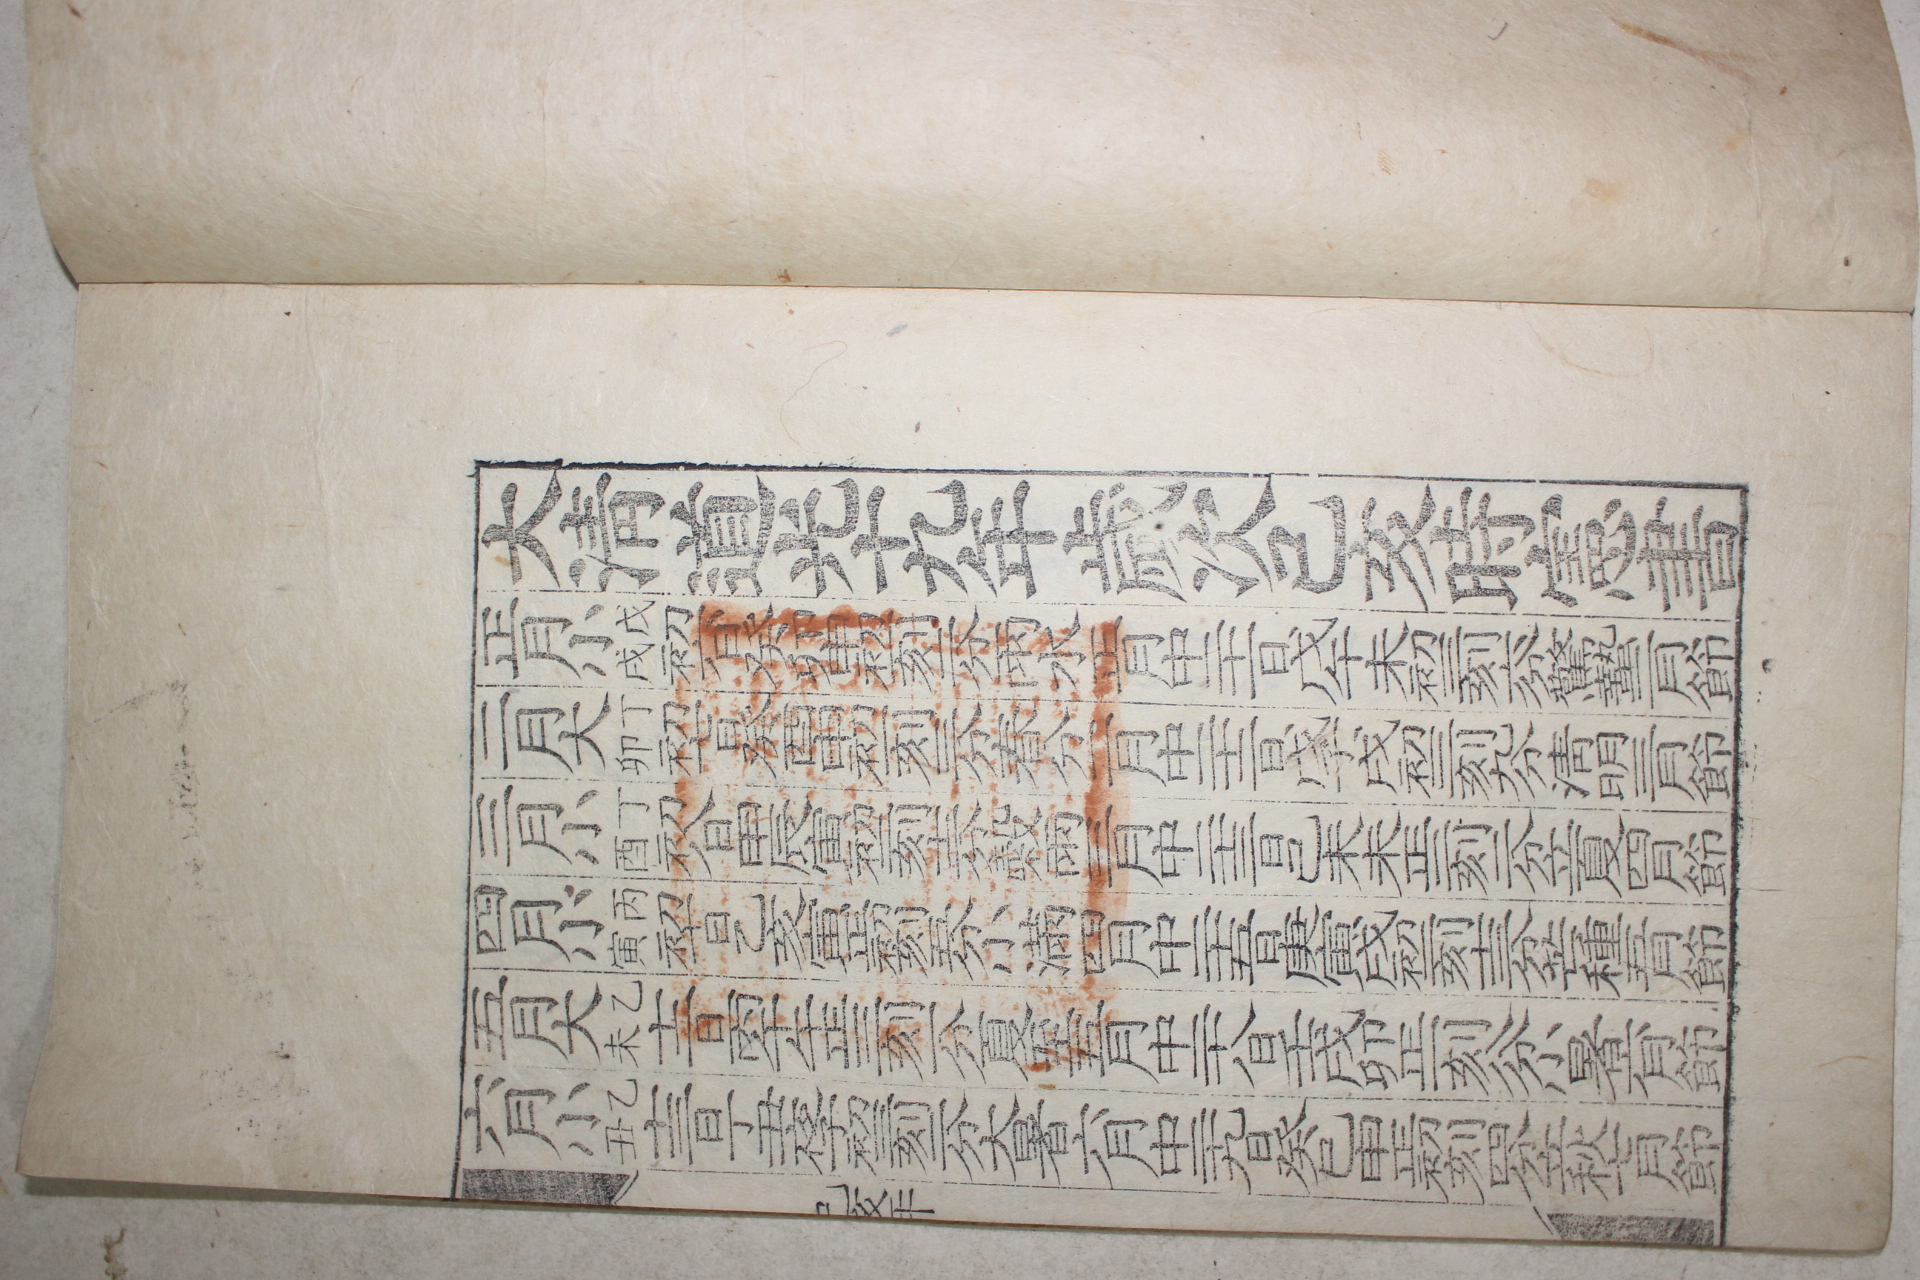 大淸道光十九年歲次己亥時憲書
正月小戊戌初六日癸卯申初一刻二分雨水正月中二十一日戊午未初三刻六分驚蟄二月節
二月大丁卯初七日癸酉申初一刻二分春分二月中二十二日戊子戌初三刻九分淸明三月節
三月小丁酉初八日甲辰寅初二刻十二分穀雨三月中二十三日己未未正二刻二分立夏四月節
四月小丙寅初十日乙亥寅正初刻五分小滿四月中二十五日庚寅戌初一刻十三分芒種五月節
五月大乙未十二日丙午午正三刻一分夏至五月中二十八日壬戌卯正一刻八分小暑六月節
六月小乙丑十三日丁丑夜子初三刻二分大暑六月中二十九日癸巳申正初刻四分立秋七月節
己亥年